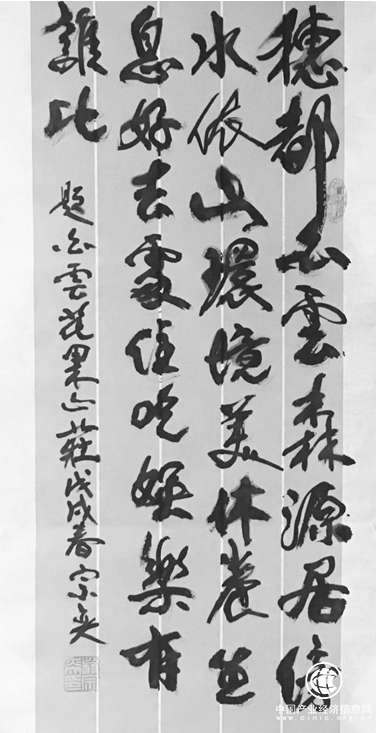 穗都白雲森源居傍
水依山環境美休養生
息好去處住吃娛樂有
誰比
題白雲花果山莊戊戌春宗奕
中国产业经济信息网
www.cinic.org.cn